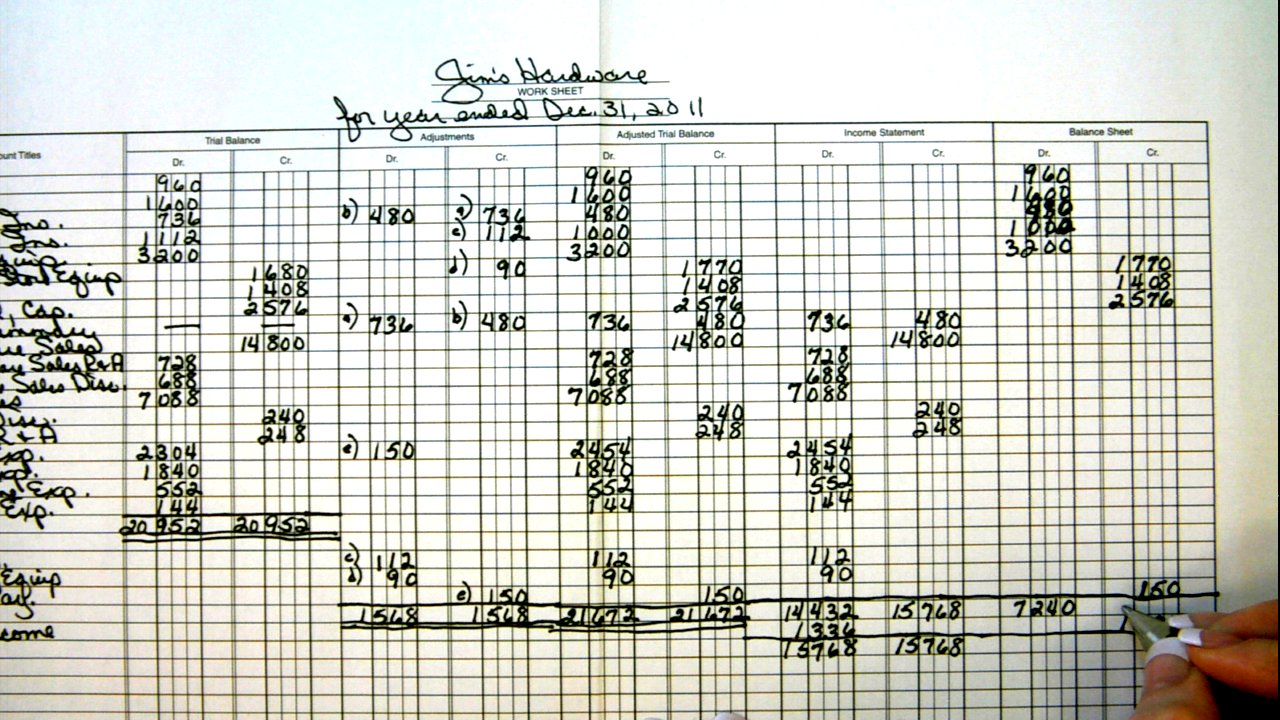 Jim's Hardware
WORK SHEET
for year ended Dec. 31, 2011
Trial Balance Adjustments Adjusted Trial Balance Income Statement Balance Sheet
Titles Dr. Cr. Dr. Cr. Dr. Cr. Dr. Cr. Dr. Cr.
960 960 960
1600 1600 1600
Ins. 736 b) 480 a) 736 480 480
Ins. 1112 c) 112 1000 1000
3200 3200 3200
Equip 1680 d) 90 1770 1770
1408 1408 1408
Cap. 2576 2576 2576
— — a) 736 b) 480 736 480 736 480
Sales 14800 14800 14800
Sales R+A 728 728 728
Sales Disc. 688 688 688
7088 7088 7088
240 240 240
R + A 248 248 248
2304 e) 150 2454 2454
1840 1840 1840
Exp. 552 552 552
Exp. 144 144 144
20952 20952
c) 112 112 112
Equip d) 90 90 90
e) 150 150 150
1568 1568 21672 21672 14432 15768 7240
1336
15768 15768